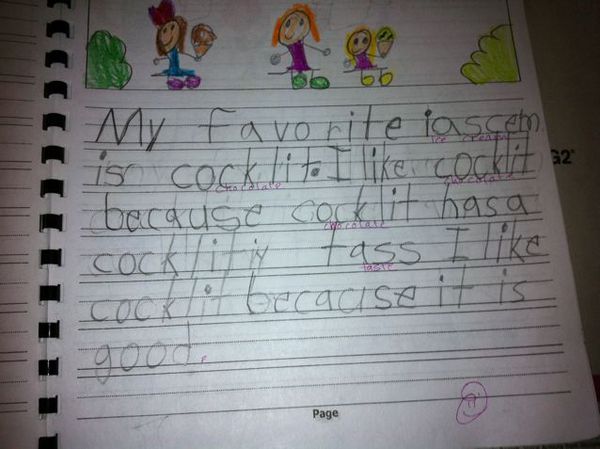 My favorite iascem
ice cream
is cocklit. I like cocklit
chocolate chocolate
because cocklit has a
chocolate
cocklitiy tass I like
taste
cocklit because it is
good.
Page
G2